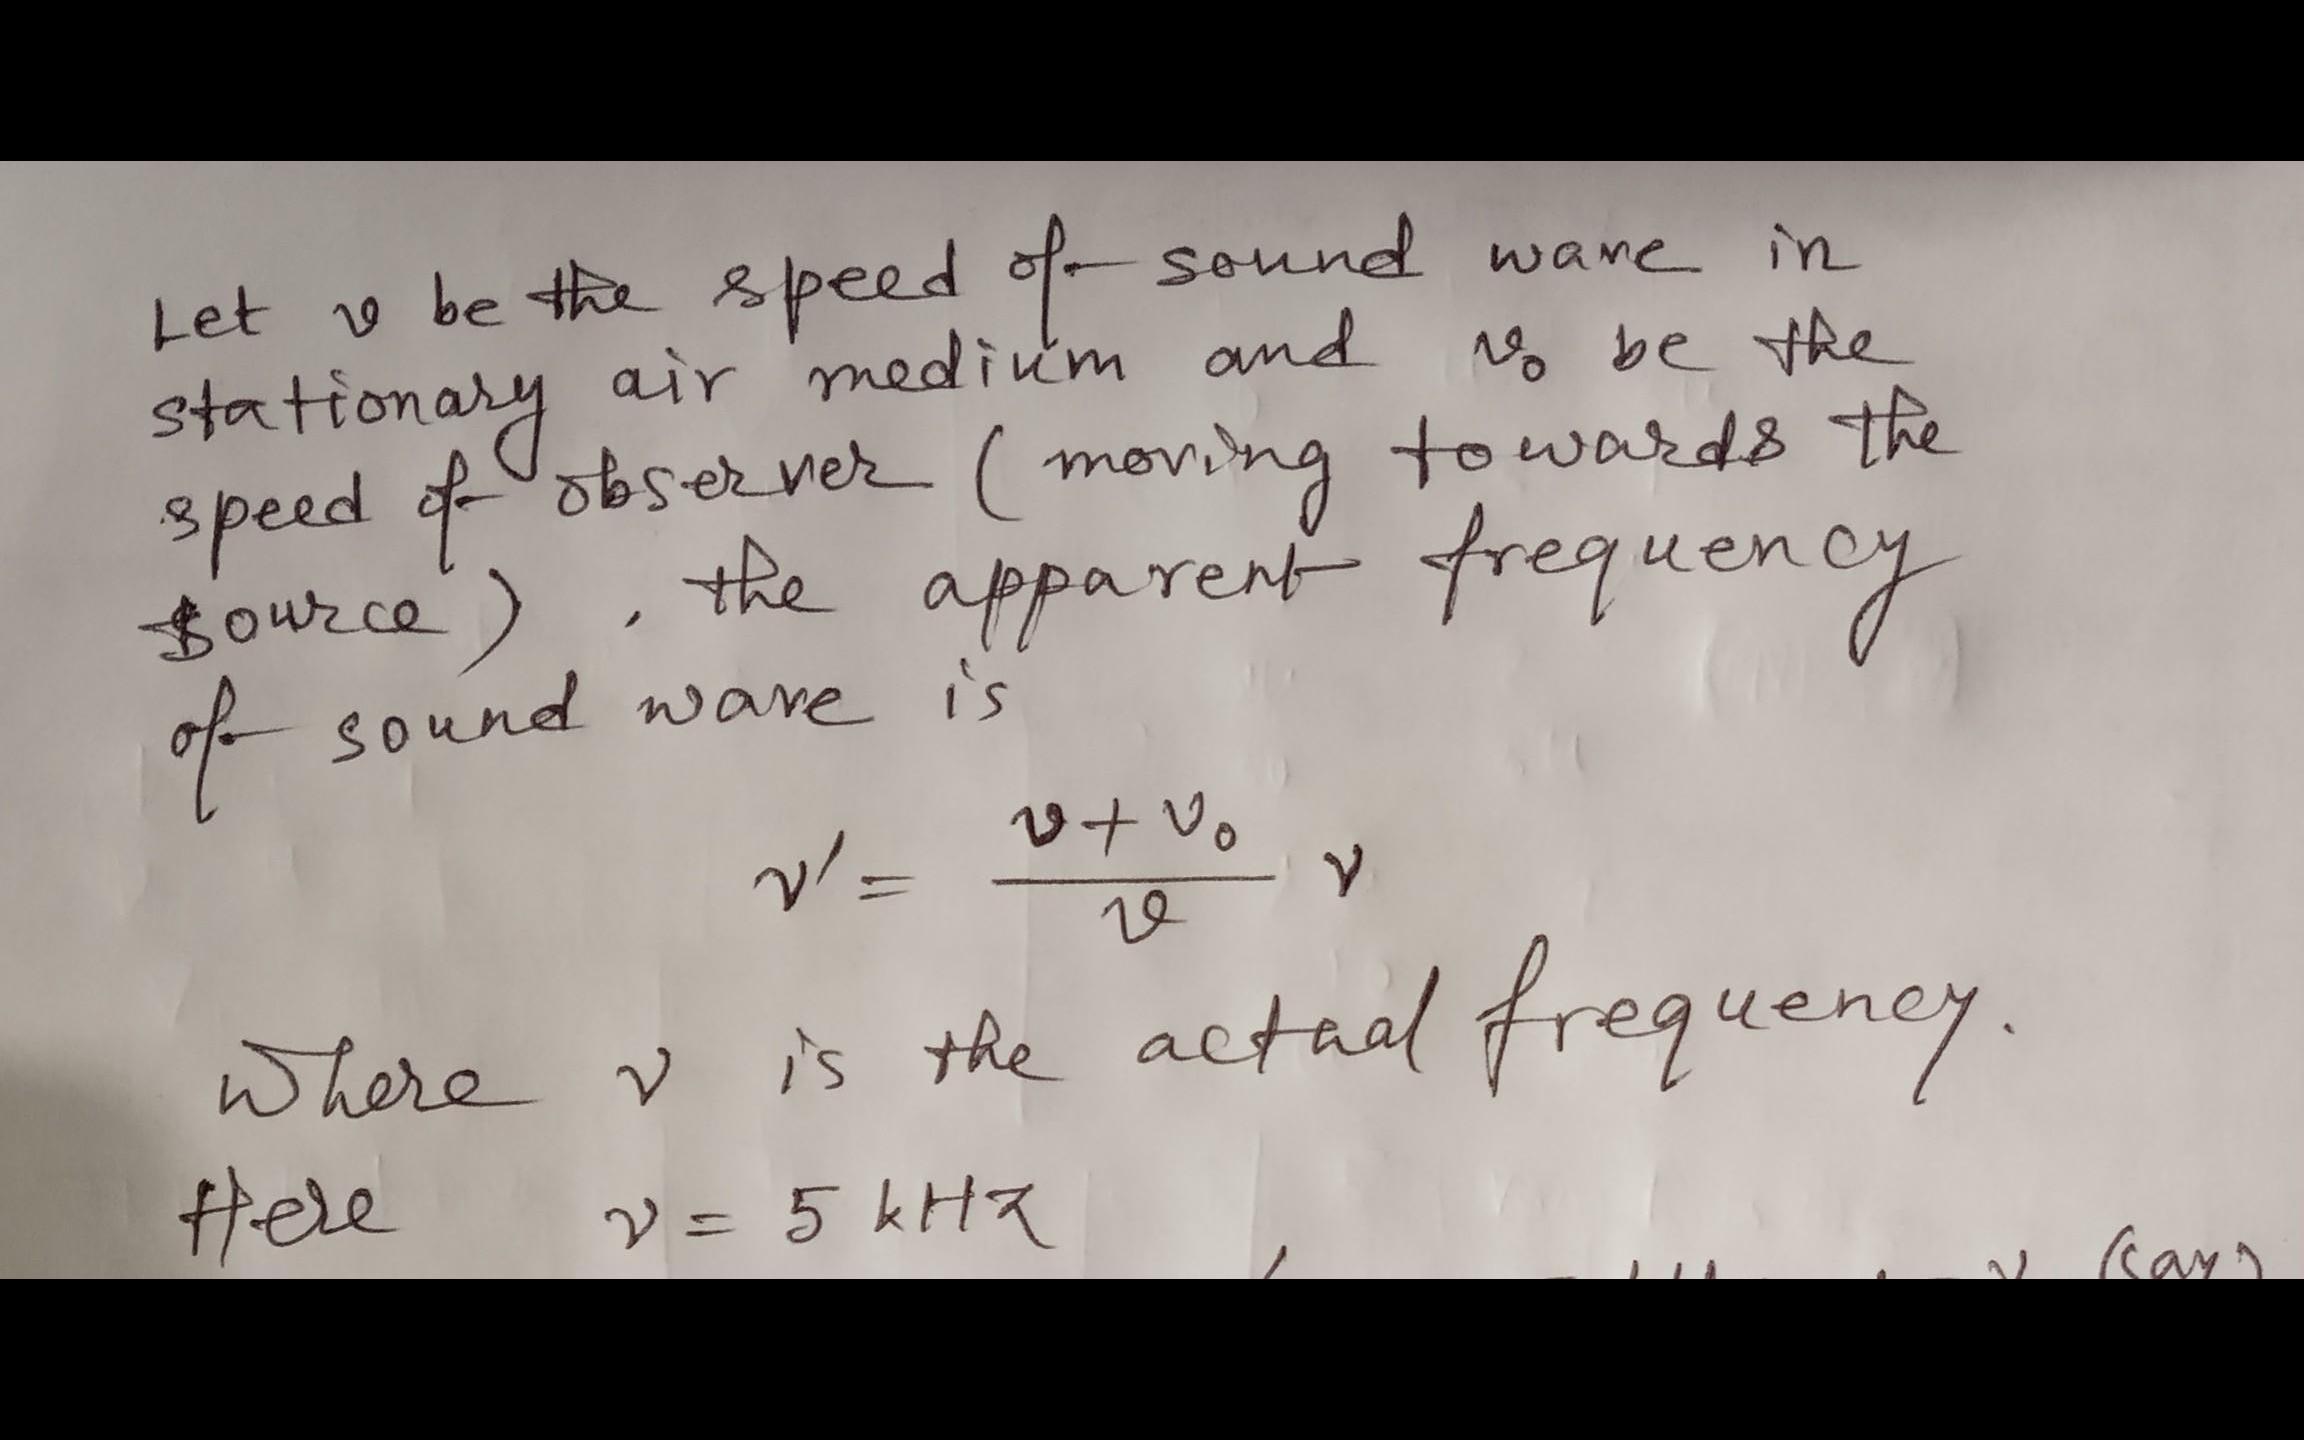 Let v be the speed of sound wave in
stationary air medium and v₀ be the
speed of observer (moving towards the
source), the apparent frequency
of sound wave is
ν' = (v + v₀)/v ν
Where ν is the actual frequency.
Here ν = 5 kHz
(say)